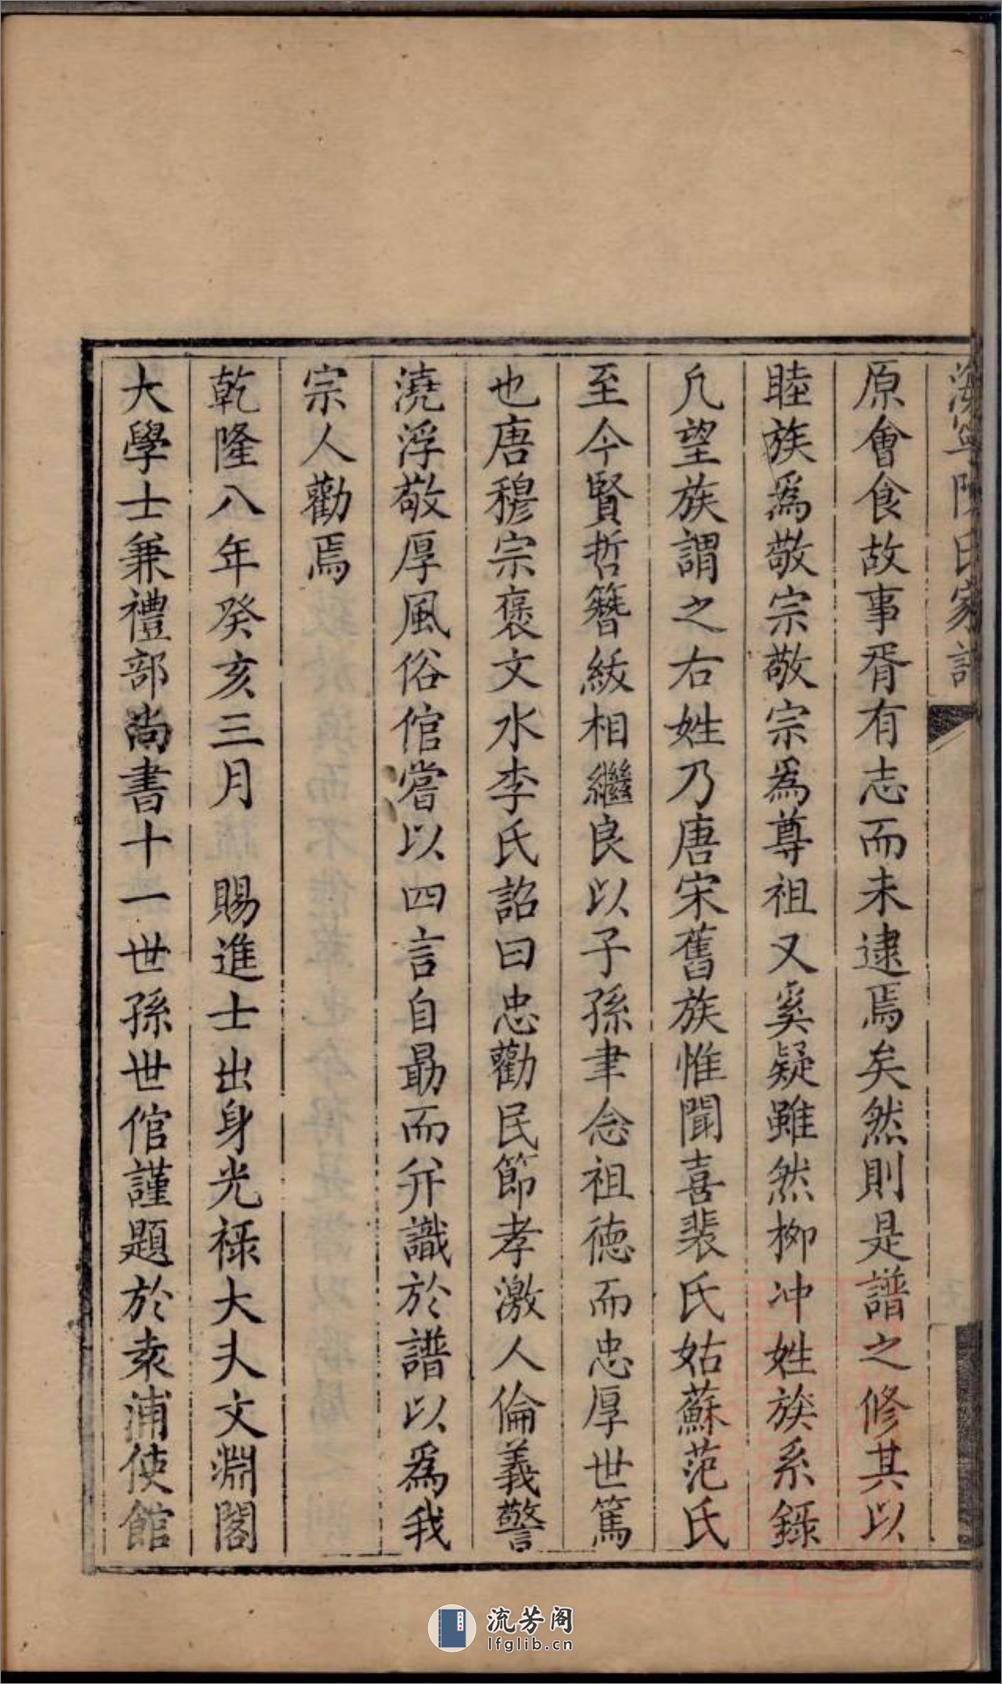 陳氏家譜
原會食故事胥有志而未逮焉矣然則是譜之修其以
睦族為敬宗敬宗為尊祖又奚疑雖然柳冲姓族系錄
凡望族謂之右姓乃唐宋舊族惟聞喜裴氏姑蘇范氏
至今賢哲簪紱相繼良以子孫聿念祖德而忠厚世篤
也唐穆宗褒文水李氏詔曰忠勸民節孝激人倫義警
澆浮敬厚風俗倌嘗以四言自勗而并識於譜以為我
宗人勸焉
乾隆八年癸亥三月 賜進士出身光祿大夫文淵閣
大學士兼禮部尚書十一世孫世倌謹題於袁浦使館
流芳阁
lfglib.cn